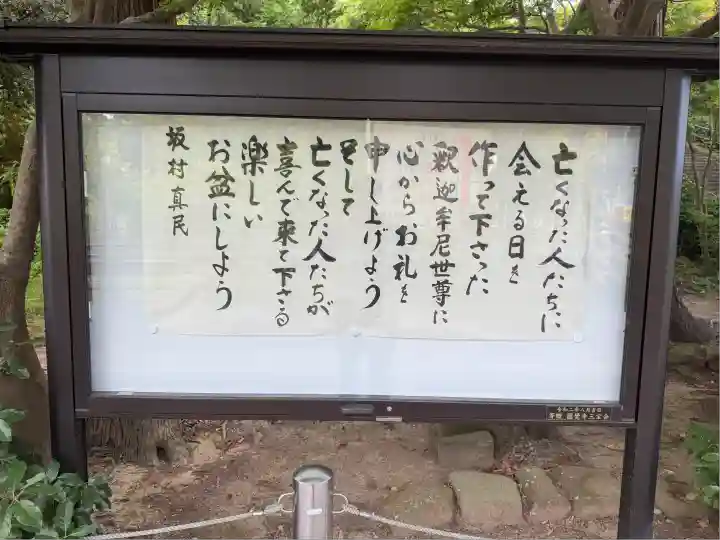 亡くなった人たちに
会える日を
作って下さった
釈迦牟尼世尊に
心からお礼を
申し上げよう
そして
亡くなった人たちが
喜んで来て下さる
楽しい
お盆にしよう
坂村真民
令和二年八月吉日
寄贈 圓覺寺三宝会